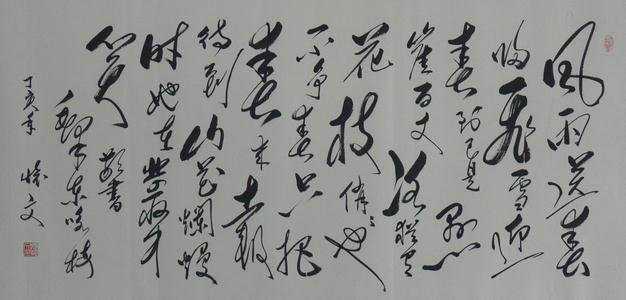 风雨送春
归飞雪迎
春到已是悬
崖百丈冰犹有
花枝俏俏也
不争春只把
春来报
待到山花爛熳
时她在丛中
笑 敬书
毛泽东咏梅
丁亥年 怀文